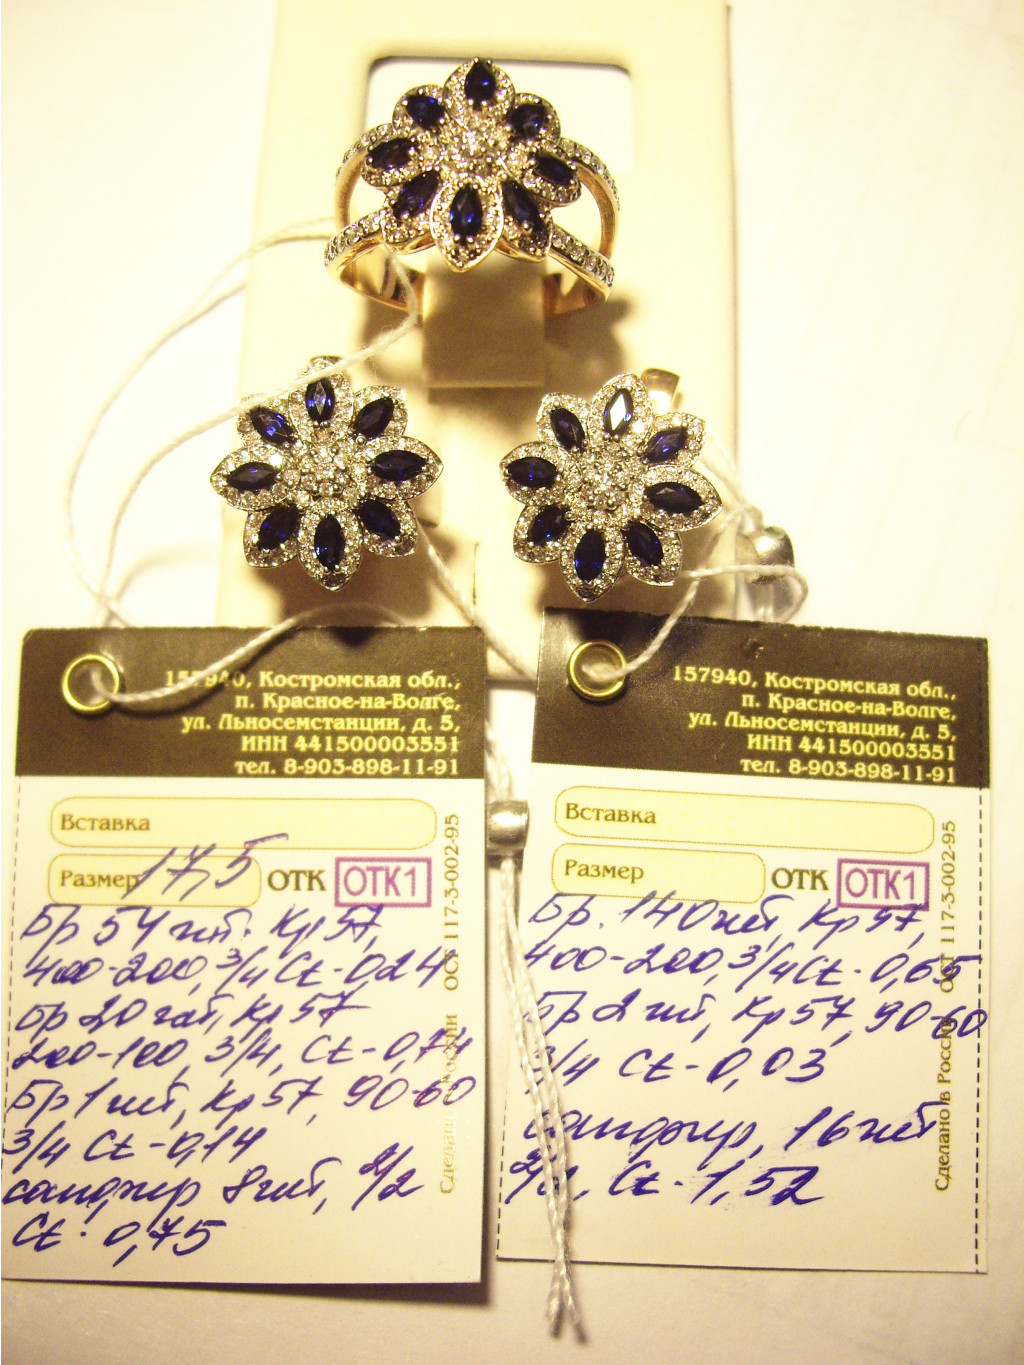 157940, Костромская обл.,
п. Красное-на-Волге,
ул. Льносемстанции, д. 5,
ИНН 441500003551
тел. 8-903-898-11-91
Вставка
Размер 17,5 ОТК ОТК1
Бр 54 шт. Кр 57,
400-200, 3/4 Ct-0,24
Бр 20 шт, Кр 57
200-100, 3/4, Ct-0,74
Бр 1 шт, Кр 57, 90-60
3/4 Ct-0,14
сапфир 8 шт, 2/2
Ct-0,75
ОСТ 117-3-002-95
Сделано в России
157940, Костромская обл.,
п. Красное-на-Волге,
ул. Льносемстанции, д. 5,
ИНН 441500003551
тел. 8-903-898-11-91
Вставка
Размер ОТК ОТК1
Бр. 140 шт, Кр 57,
400-200, 3/4 Ct-0,65
Бр 2 шт, Кр 57, 90-60
3/4 Ct-0,03
сапфир, 16 шт
Ct-1,52
ОСТ 117-3-002-95
Сделано в России